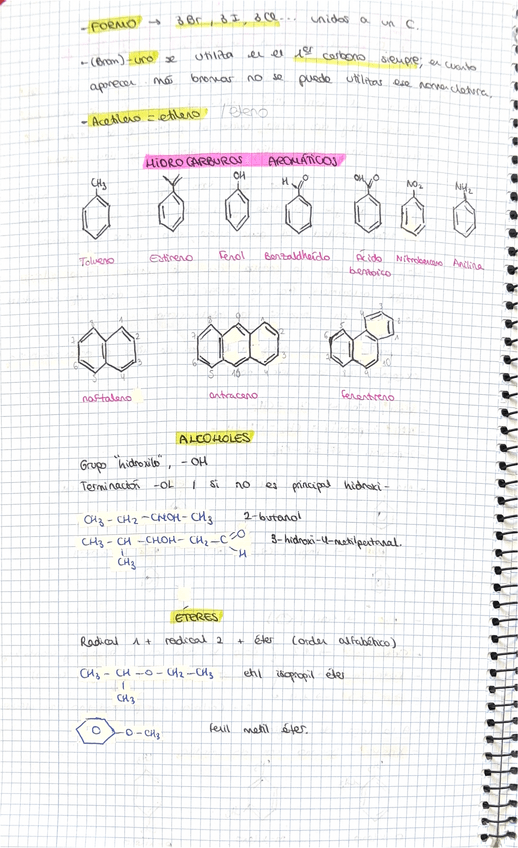 - FORMO → 3Br, 3I, 3Cl... unidos a un C.
- (Brom)-uro se utiliza en el 1er carbono siempre, en cuanto
aparecen más bromuros no se puede utilizar esa nomenclatura.
- Acetileno = etileno / eteno
HIDROCARBUROS AROMÁTICOS
CH3 OH H O OH O NO2 NH2
Tolueno Estireno Fenol Benzaldheído Ácido benzoico Nitrobenceno Anilina
8 1 2 3 4 5 6 7
8 9 1 2 3 4 10 5 6 7
4 3 2 1 5 6 7 8 9 10
naftaleno antraceno fenantreno
ALCOHOLES
Grupo "hidroxilo", -OH
Terminación -OL / si no es principal hidroxi-
CH3 - CH2 - CHOH - CH3 2-butanol
CH3 - CH - CHOH - CH2 - C =O 3-hidroxi-4-metilpentanal.
CH3 H
ÉTERES
Radical 1 + radical 2 + éter (orden alfabético)
CH3 - CH - O - CH2 - CH3 etil isopropil éter
CH3
-O-CH3 fenil metil éter.